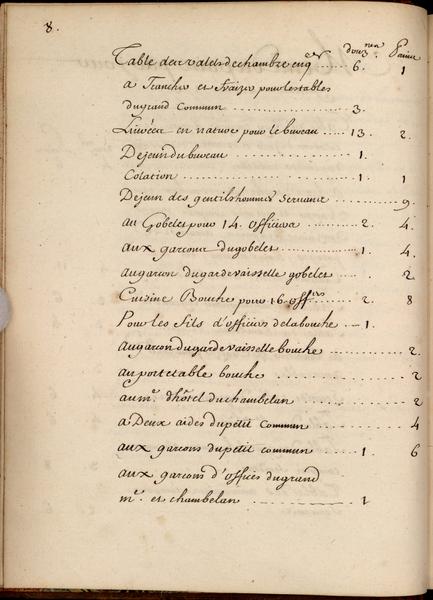 8.
douz.nes Pains
Table des valets de chambre enq.er ... 6. 1
a Trancher et fraizer pour les tables
du grand Commun ... 3.
Livréer en nature pour le bureau ... 13. 2.
Dejeun du bureau ... 1.
Colation ... 1. 1
Dejeun des gentilshommes servants ... 9.
au Gobelet pour 14. officiers ... 2. 4.
aux garçons du gobelet ... 1. 4.
au garçon du garde vaisselle gobelet ... 2
Cuisine Bouche pour 16 off.ers ... 2. 8
Pour les fils d'officiers de la bouche ... 1.
au garçon du garde vaisselle bouche ... 2.
au porte table bouche ... 2
au m.e d'hôtel du chambelan ... 2
a Deux aides du petit Commun ... 4
aux garçons du petit commun ... 1. 6
aux garçons d'offices du grand
m.e et chambelan ... 1